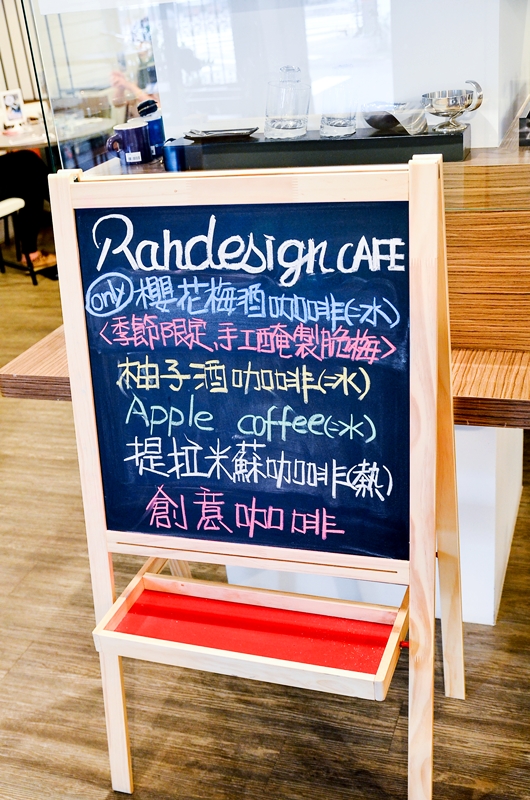 Rahdesign CAFE
only 櫻花梅酒咖啡(冰)
<季節限定、手工醃製脆梅>
柚子酒咖啡(冰)
Apple coffee(冰)
提拉米蘇咖啡(熱)
創意咖啡